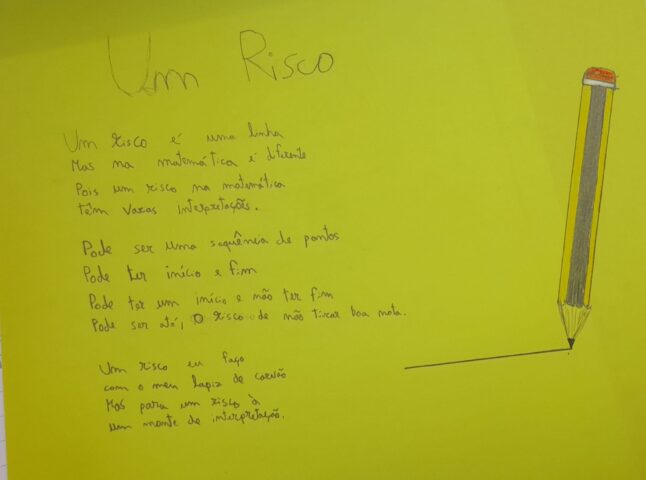 Um Risco
Um risco é uma linha
Mas na matemática é diferente
Pois um risco na matemática
têm varas interpretações.
Pode ser uma sequência de pontos
Pode ter início e fim
Pode ter um início e não ter fim
Pode ser até, O risco de não tirar boa nota.
Um risco eu faço
com o meu lapiz de carvão
Mas para um risco à
um monte de interpretação.